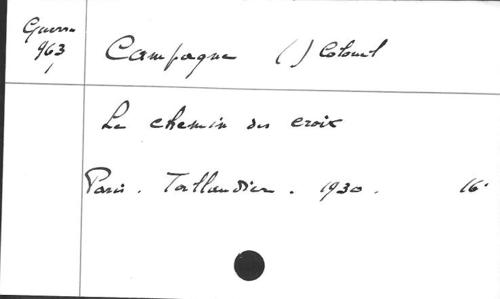 Guerre
963
Campagne ( ) Colonel
Le chemin des croix
Paris. Tallandier. 1930. 16°